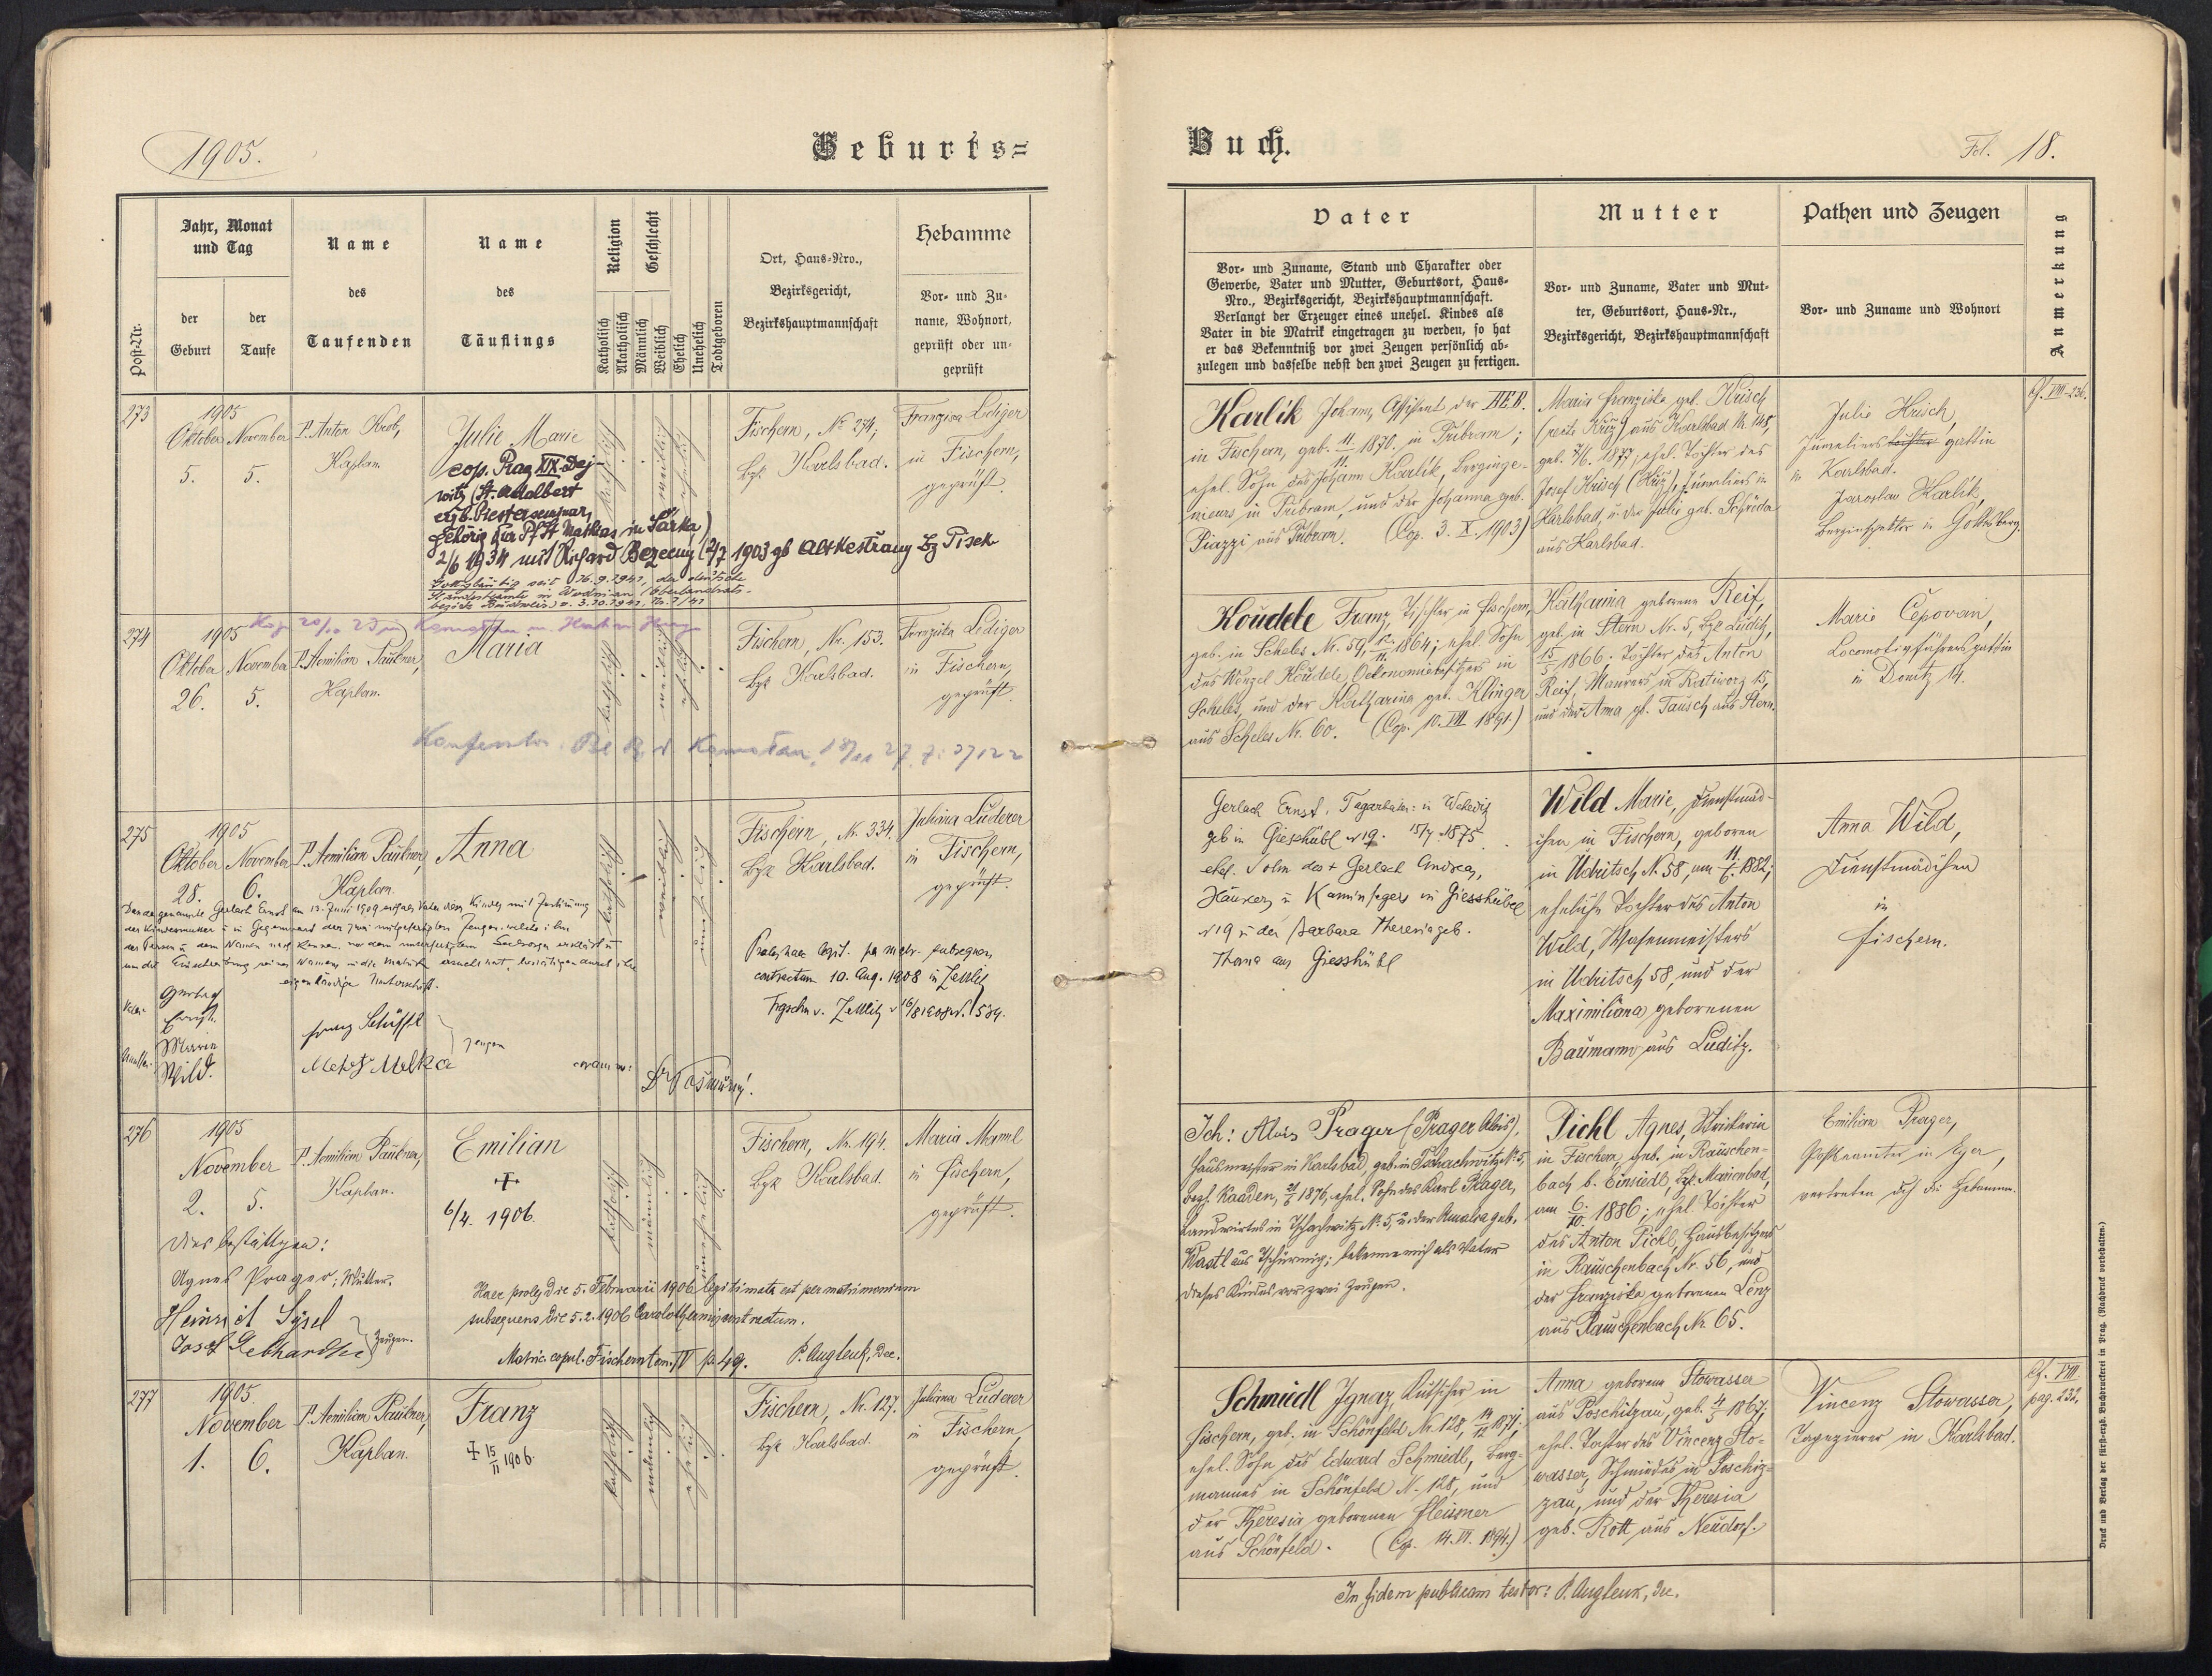 1905.
Geburts=
Post-Nr.
Jahr, Monat
und Tag
der
Geburt
der
Taufe
Name
des
Taufenden
Name
des
Täuflings
Religion
Katholisch
Akatholisch
Geschlecht
Männlich
Weiblich
Ehelich
Unehelich
Todtgeboren
Ort, Haus-Nro.,
Bezirksgericht,
Bezirkshauptmannschaft
Hebamme
Vor- und Zu-
name, Wohnort,
geprüft oder un-
geprüft
273
1905
Oktober November
5. 5.
P. Anton Krob,
Kaplan
Julie Marie
cop. Prag XIX-Dej-
witz (St. Adalbert
erzb. Priesterseminar,
gehörig zur Pf St Mathias in Šárka)
2/6 1934 mit Richard Bezecny (2/7 1903 gb Altkestřany Bz Pisek
Gottgläubig seit 16.9.1941, der deutsche
katholisch
weiblich
ehelich
Fischern, No 274;
Bzk Karlsbad.
Franziska Lediger
in Fischern,
geprüft.
274
1905
Oktober November
26. 5.
P. Aemilian Paukner,
Kaplan.
Maria
katholisch
weiblich
ehelich
Fischern, Nr. 153.
Bzk Karlsbad.
Franziska Lediger
in Fischern,
geprüft.
275
1905
Oktober November
28. 6.
P. Aemilian Paukner,
Kaplan.
Anna
katholisch
weiblich
unehelich
Fischern, Nr. 334.
Bzk Karlsbad.
Juliana Luderer
in Fischern,
geprüft.
eigenhändige Unterschrift.
Vater
Gerlach
Ernst.
Mutter
Marie
Wild.
Franz Schüffl
Zeugen
contractum 10. Aug. 1908 in Zettlitz
276
1905
November
2. 5.
P. Aemilian Paukner,
Kaplan.
Emilian
+
6/4. 1906.
katholisch
männlich
unehelich
Fischern, Nr. 194.
Bzk Karlsbad.
Maria Mannl
in Fischern,
geprüft.
Dies bestättigen:
Agnes Prager; Mutter.
Heinrich Sysel
Josef Gebhardt
Zeugen.
Haec proles die 5. Februarii 1906 legitimata est per matrimonium
subsequens die 5.2.1906 Carolothermis contractum.
Matric. copul. Fischern tom. IV p. 49. P. Auglenk, Dec.
277
1905
November
1. 6.
P. Aemilian Paukner,
Kaplan.
Franz
+ 15/II 1906.
katholisch
männlich
ehelich
Fischern, Nr. 127.
Bzk Karlsbad.
Juliana Luderer
in Fischern,
geprüft.
Buch.
Fol. 18.
Vater
Vor- und Zuname, Stand und Charakter oder
Gewerbe, Vater und Mutter, Geburtsort, Haus-
Nro., Bezirksgericht, Bezirkshauptmannschaft.
Verlangt der Erzeuger eines unehel. Kindes als
Vater in die Matrik eingetragen zu werden, so hat
er das Bekenntniß vor zwei Zeugen persönlich ab-
zulegen und dasselbe nebst den zwei Zeugen zu fertigen.
Mutter
Vor- und Zuname, Vater und Mut-
ter, Geburtsort, Haus-Nr.,
Bezirksgericht, Bezirkshauptmannschaft
Pathen und Zeugen
Vor- und Zuname und Wohnort
Anmerkung
Karlik Johann, Assistent der BEB.
in Fischern, geb. 11/11. 1870. in Pribram;
ehel. Sohn des Johann Karlík, Berginge-
nieurs in Pribram, und der Johanna geb.
Piazzi aus Pribram. (Cop. 3. X. 1903)
Maria Franziska geb. Krisch
(recte Kříž) aus Karlsbad Nr. 145,
geb. 7/6. 1877, ehel. Tochter des
Josef Krisch (Kříž), Juweliers in
Karlsbad, u. der Julie geb. Schröda
aus Karlsbad.
Julie Krisch,
Juweliers gattin
in Karlsbad.
Jaroslav Karlík,
Berginspektor in Gottesberg.
Cf. VIII-236.
Koudele Franz, Tischler in Fischern,
geb. in Scheles Nr. 59, 12/11. 1864; ehel. Sohn
des Wenzel Koudele, Oekonomiebesitzers in
Scheles, und der Katharina geb. Klinger
aus Scheles Nr. 60. (Cop. 10. VIII 1891.)
Katharina geborene Reif,
geb. in Stern Nr. 5, Bzk Luditz,
15/5 1866; Tochter des Anton
Reif, Maurers in Ratiworz 15,
und der Anna gb. Tausch aus Stern.
Marie Čepovan,
Locomotivführersgattin
in Donitz 14.
Gerlach Ernst, Tagarbeiter in Weheditz
geb in Giesshübl N 19. 15/7 1875.
ehel. Sohn des + Gerlach Andreas,
Häuslers u Kaminfegers in Giesshübel
N 19 u der Barbara Theresia geb.
aus Giesshübl
Wild Marie, Dienstmäd-
chen in Fischern, geboren
in Udritsch N. 58, am 11/5. 1882;
eheliche Tochter des Anton
Wild, Wasenmeisters
in Udritsch 58, und der
Maximiliana geborenen
Baumann aus Luditz.
Anna Wild,
Dienstmädchen
in
Fischern.
Ich: Alois Prager (Prager Alois),
Hausmeister in Karlsbad, geb. in Tschachwitz Nr. 5,
Bezh. Kaaden, 21/6 1876, ehel. Sohn des Karl Prager,
Landwirtes in Tschachwitz Nr. 5, u. der Amalia geb.
Wastl aus Tschürnig; bekenne mich als Vater
dieses Kindes vor zwei Zeugen.
Pichl Agnes, Strickerin
in Fischern, geb. in Rauschen-
bach b. Einsiedl, Bzk. Marienbad,
am 6./10. 1886; ehel. Tochter
des Anton Pichl, Hausbesitzers
in Rauschenbach Nr. 56, und
der Franziska geborenen Lenz
aus Rauschenbach Nr. 65.
Emilian Prager,
Postbeamter in Eger,
vertreten durch die Hebamme.
Schmiedl Ignaz, Kutscher in
Fischern, geb. in Schönfeld Nr. 128, 14/12 1871;
ehel. Sohn des Eduard Schmiedl, Berg-
mannes in Schönfeld N. 128, und
der Theresia geborenen Fleissner
aus Schönfeld. (Cop. 14. VI. 1894.)
Anna geborene Stowasser
aus Poschitzau, geb. 4/5 1867;
ehel. Tochter des Vincenz Sto-
wasser, Schmiedes in Poschiz-
zau, und der Theresia
geb. Rott aus Neudorf.
Vincenz Stowasser,
Tapezierer in Karlsbad.
Cf. VIII
pag. 232.
In fidem publicam testor: P. Auglenk, Dec.
Druck und Verlag der fürst-erzb. Buchdruckerei in Prag. (Nachdruck vorbehalten.)